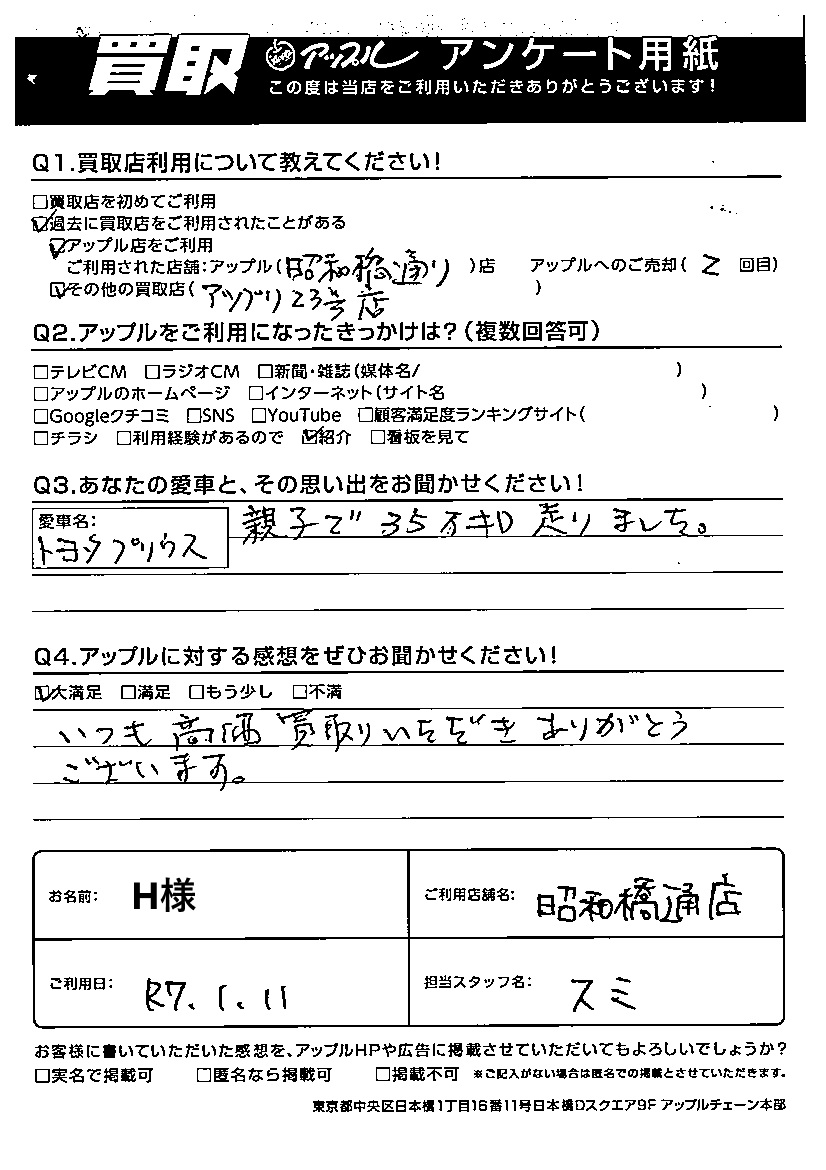 買取 アップル アンケート用紙
この度は当店をご利用いただきありがとうございます!
Q1.買取店利用について教えてください!
□買取店を初めてご利用
☑過去に買取店をご利用されたことがある
☑アップル店をご利用
ご利用された店舗:アップル(昭和橋通り)店 アップルへのご売却(2回目)
☑その他の買取店(アップリ23号店)
Q2.アップルをご利用になったきっかけは?(複数回答可)
□テレビCM □ラジオCM □新聞・雑誌(媒体名/ )
□アップルのホームページ □インターネット(サイト名 )
□Googleクチコミ □SNS □YouTube □顧客満足度ランキングサイト( )
□チラシ □利用経験があるので ☑紹介 □看板を見て
Q3.あなたの愛車と、その思い出をお聞かせください!
愛車名:
トヨタプリウス
親子で35万キロ走りました。
Q4.アップルに対する感想をぜひお聞かせください!
☑大満足 □満足 □もう少し □不満
いつも高価買取りいただきありがとう
ございます。
お名前: H様
ご利用店舗名: 昭和橋通店
ご利用日: R7.1.11
担当スタッフ名: スミ
お客様に書いていただいた感想を、アップルHPや広告に掲載させていただいてもよろしいでしょうか?
□実名で掲載可 □匿名なら掲載可 □掲載不可 ※ご記入がない場合は匿名での掲載とさせていただきます。
東京都中央区日本橋1丁目16番11号日本橋Dスクエア9F アップルチェーン本部